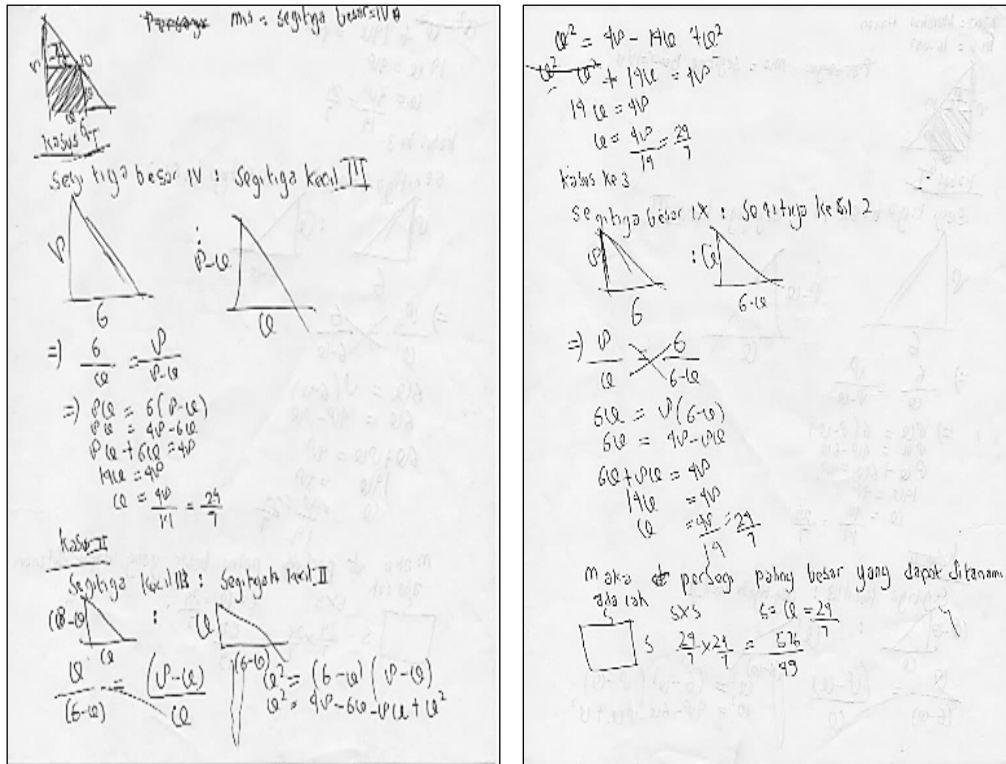 misal segitiga besar = IV
8
Kasus I
Segitiga besar IV : Segitiga kecil III
8 : 8-a
6 a
=) 6/a = 8/8-a
=) 8a = 6(8-a)
8a = 48-6a
8a + 6a = 48
14a = 48
a = 48/14 = 24/7
Kasus II
Segitiga kecil III : Segitiga kecil II
(8-a) : a
a (6-a)
a/(6-a) = (8-a)/a
a² = (6-a) (8-a)
a² = 48-6a-8a+a²
a² = 48 - 14a + a²
a² - a² + 14a = 48
14a = 48
a = 48/14 = 24/7
Kasus ke 3
segitiga besar IV : segitiga kecil 2
8 : a
6 6-a
=) 8/a = 6/6-a
6a = 8(6-a)
6a = 48-8a
6a + 8a = 48
14a = 48
a = 48/14 = 24/7
maka persegi paling besar yang dapat ditanami
adalah s×s s = a = 24/7
s 24/7 × 24/7 = 576/49